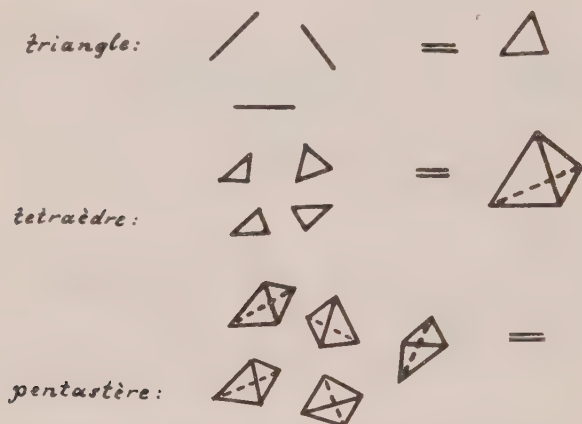 triangle:
tetraèdre:
pentastère: